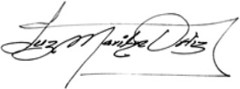 Luz Maribe Ortiz